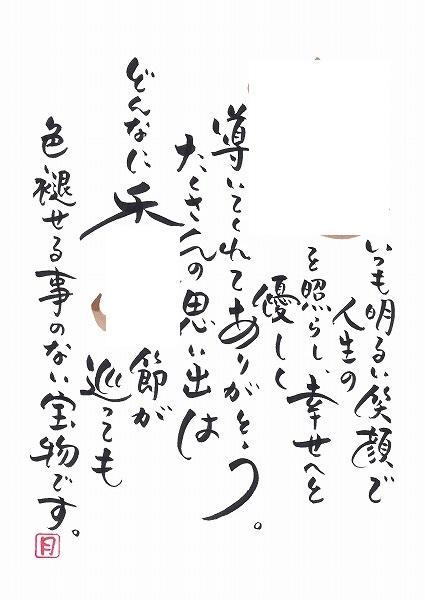 いつも明るい笑顔で
人生の
を照らし、幸せへと
優しく
導いてくれてありがとう。
たくさんの思い出は
どんなに
節が
巡っても
色褪せる事のない宝物です。
月